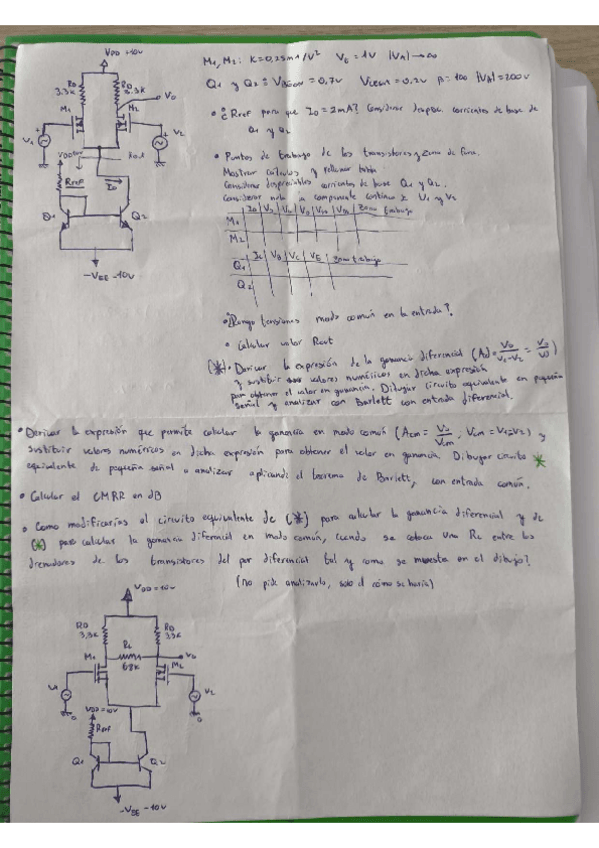 VDD +10V
M1, M2: K=0,25mA/V² Vt=1V |VA|→∞
RD 3.3K
RD 3.3K
Vo
Q1 y Q2 = VBEON=0,7V VCEsat=0.2V β=100 |VA|=200V
M1
M2
• ¿Rref para que Io=2mA? Considerar desprec. corrientes de base de
Q1 y Q2
V1
V2
• Puntos de trabajo de los transistores y zona de func.
Mostrar cálculos y rellenar tabla
Rref
Io
Considerar despreciables corrientes de base Q1 y Q2.
Considerar nula la componente continua de V1 y V2
Q1
Q2
Zona trabajo
M1
M2
-VEE -10V
IC VB VC VE Zona trabajo
Q1
Q2
• ¿Rango tensiones modo común en la entrada?
• Calcular valor Rout
(*) • Derivar la expresión de la ganancia diferencial (Ad = Vo/V1-V2 = Vo/Vd)
y sustituir valores numéricos en dicha expresión
para obtener el valor en ganancia. Dibujar circuito equivalente en pequeña
señal y analizar con Barlett con entrada diferencial.
• Derivar la expresión que permite calcular la ganancia en modo común (Acm = Vo/Vcm, Vcm=V1=V2) y
sustituir valores numéricos en dicha expresión para obtener el valor en ganancia. Dibujar circuito *
equivalente de pequeña señal a analizar aplicando el teorema de Barlett, con entrada común.
• Calcular el CMRR en dB
• Como modificarías el circuito equivalente de (*) para calcular la ganancia diferencial y de
(*) para calcular la ganancia diferencial en modo común, cuando se coloca una RL entre los
drenadores de los transistores del par diferencial tal y como se muestra en el dibujo?
(no pide analizarlo, solo el cómo se haría)
VDD=10V
RD 3,3K
RD 3,3K
RL
68K
Vo
M1
M2
V2
VDD=10V
Rref
Q1
Q2
-VEE -10V